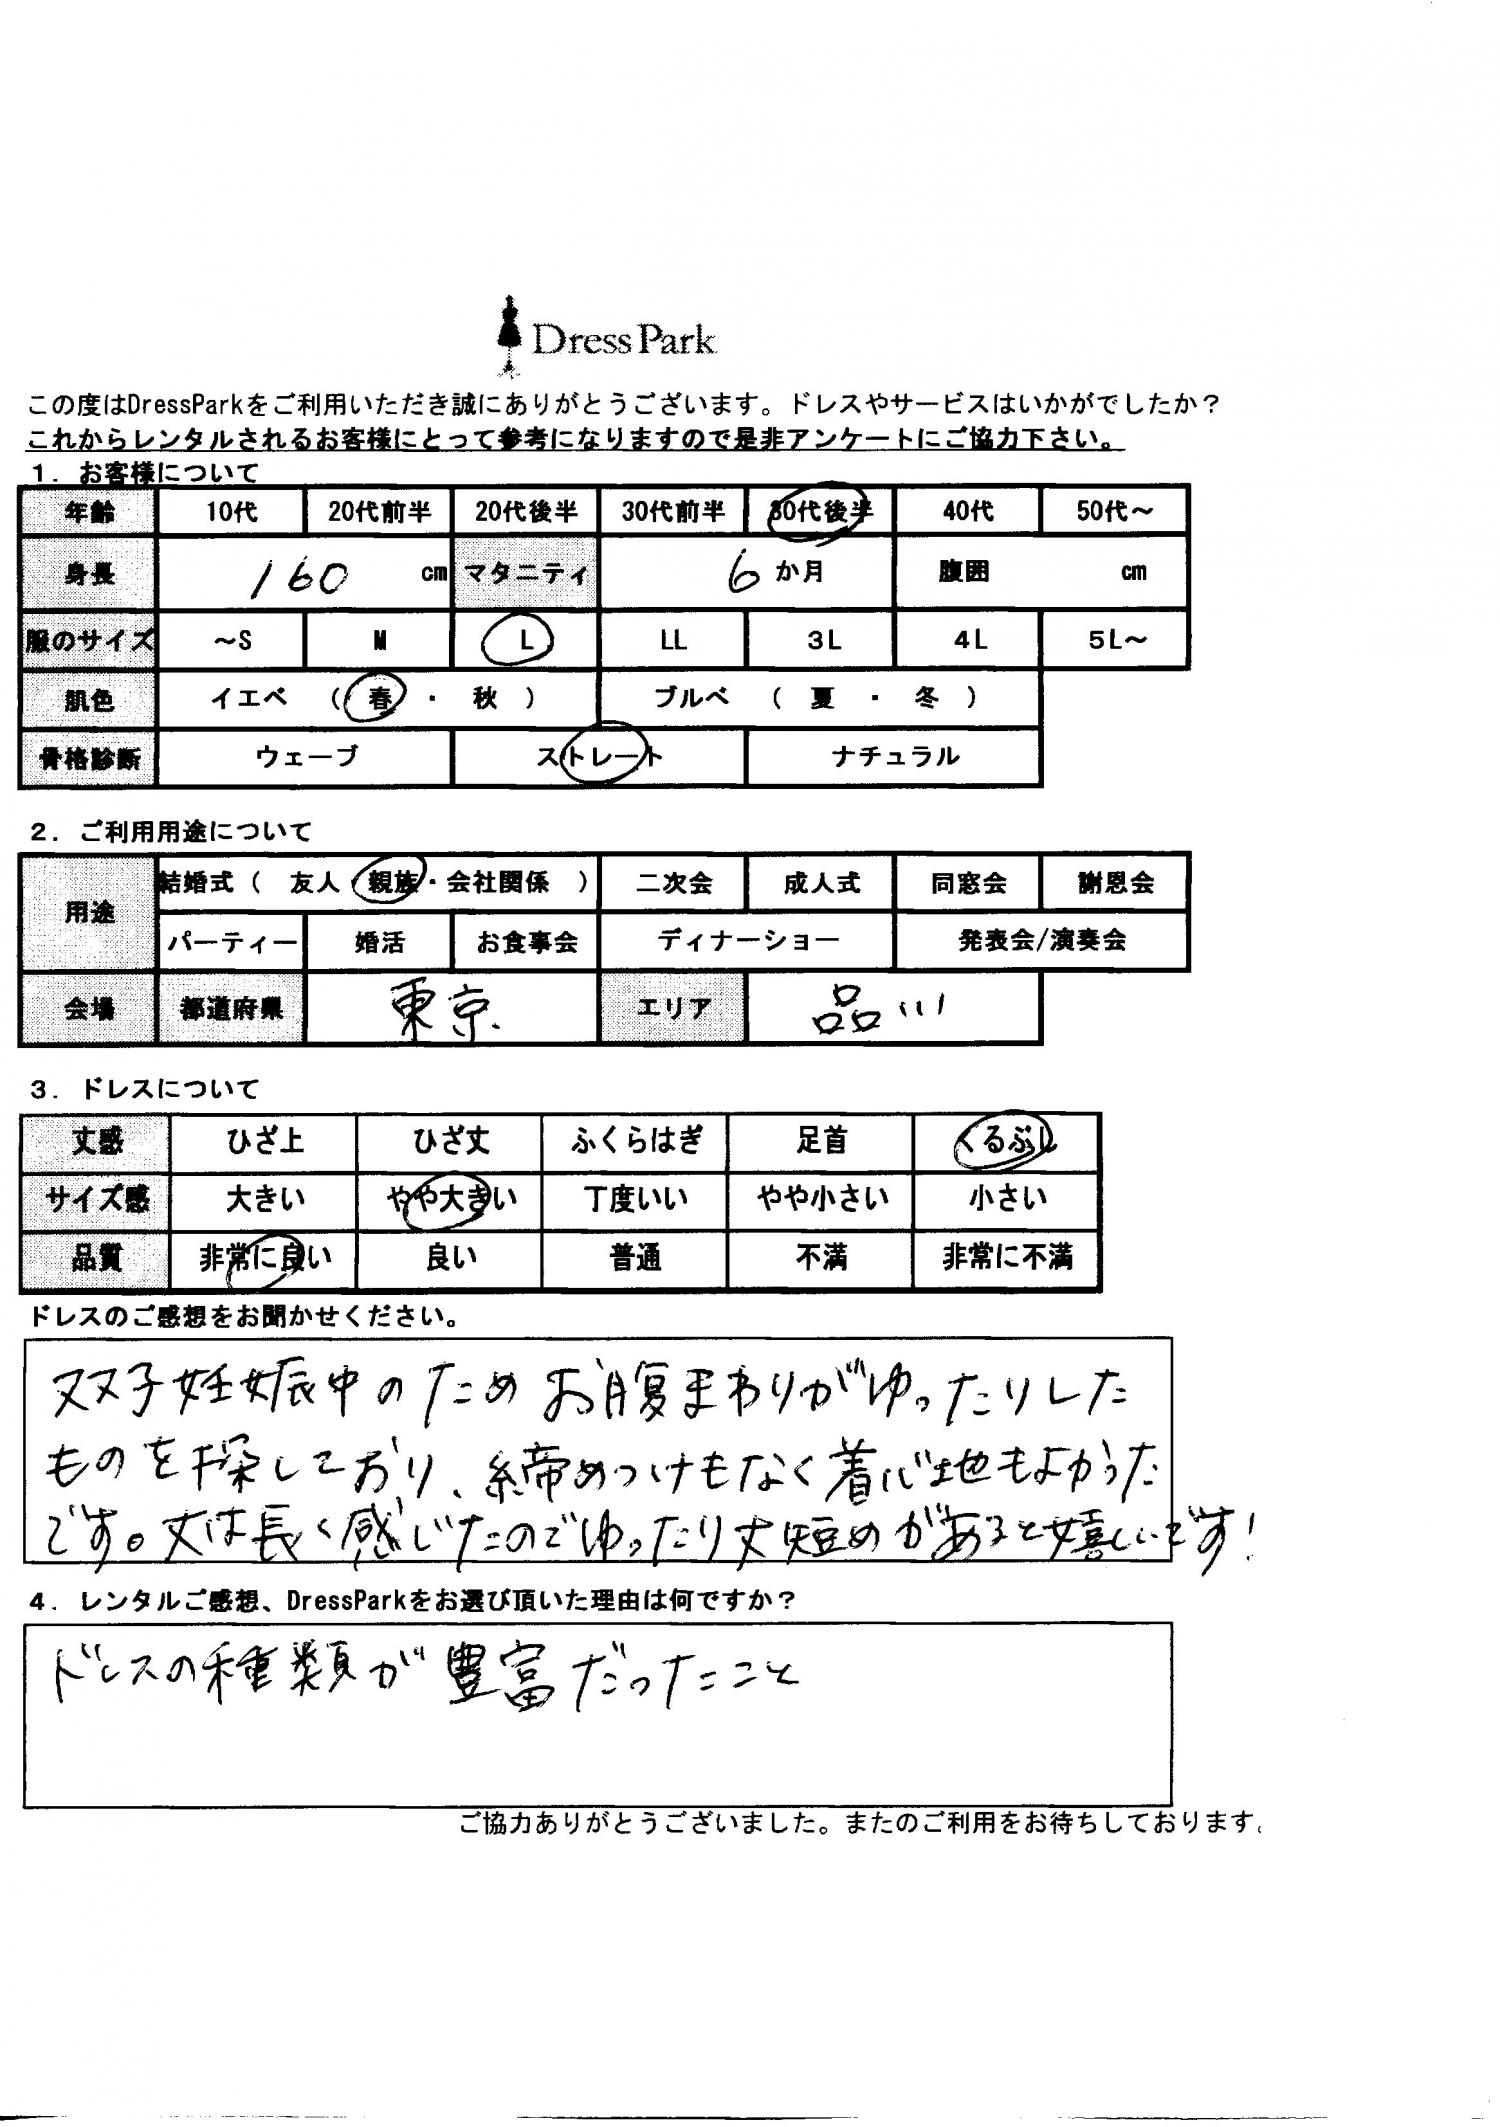 DressPark
この度はDressParkをご利用いただき誠にありがとうございます。ドレスやサービスはいかがでしたか？
これからレンタルされるお客様にとって参考になりますので是非アンケートにご協力下さい。
1．お客様について
年齢 10代 20代前半 20代後半 30代前半 30代後半 40代 50代～
身長 160 cm マタニティ 6 か月 腹囲 cm
服のサイズ ～S M L LL 3L 4L 5L～
肌色 イエベ （ 春 ・ 秋 ） ブルベ （ 夏 ・ 冬 ）
骨格診断 ウェーブ ストレート ナチュラル
2．ご利用用途について
用途 結婚式（ 友人・親族・会社関係 ） 二次会 成人式 同窓会 謝恩会
パーティー 婚活 お食事会 ディナーショー 発表会/演奏会
会場 都道府県 東京 エリア 品川
3．ドレスについて
丈感 ひざ上 ひざ丈 ふくらはぎ 足首 くるぶし
サイズ感 大きい やや大きい 丁度いい やや小さい 小さい
品質 非常に良い 良い 普通 不満 非常に不満
ドレスのご感想をお聞かせください。
双子妊娠中のためお腹まわりがゆったりした
ものを探しており、締めつけもなく着心地もよかった
です。丈は長く感じたのでゆったり丈短めがあると嬉しいです！
4．レンタルご感想、DressParkをお選び頂いた理由は何ですか？
ドレスの種類が豊富だったこと
ご協力ありがとうございました。またのご利用をお待ちしております。